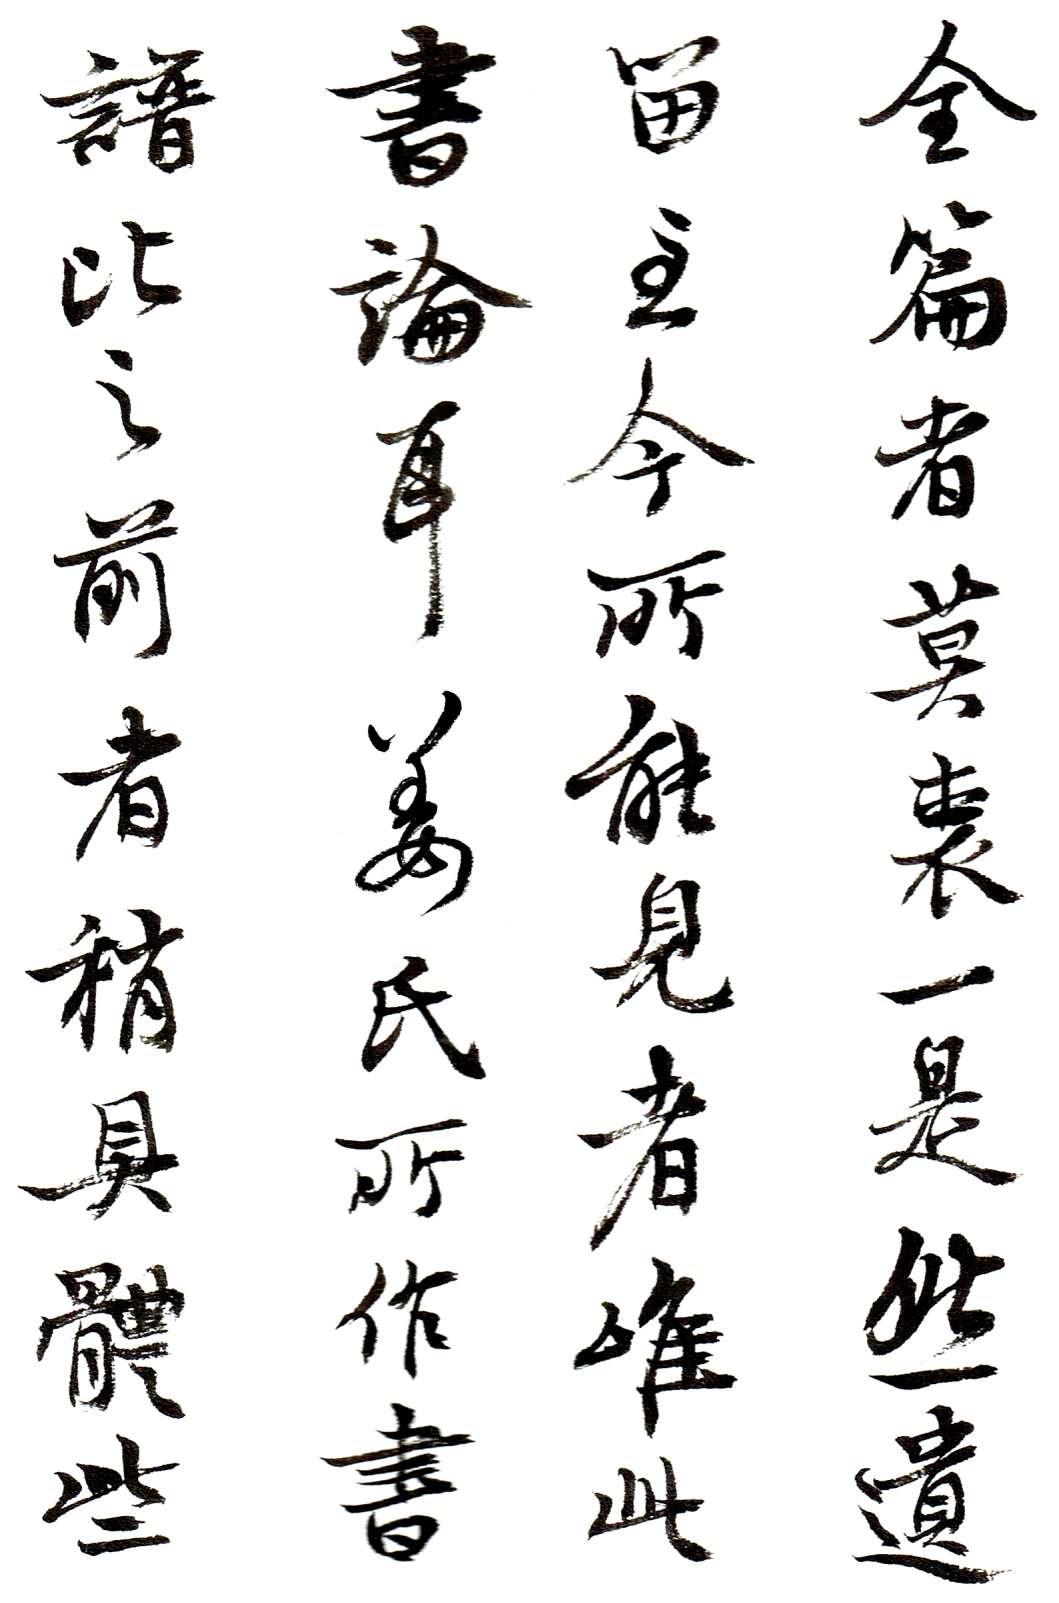 全篇者莫衷一是然遺
留至今所能見者唯此
書論耳姜氏所作書
譜比之前者稍具體些